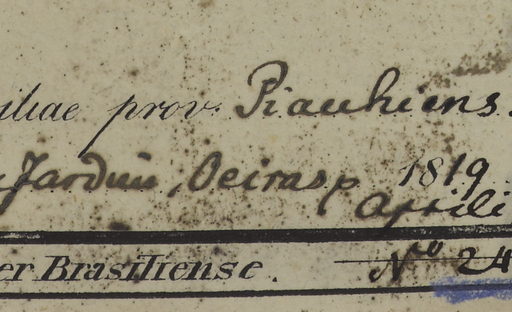 iliae prov. Piauhiens.
Jardim, Oeiras, 1819
Aprili
er Brasiliense. No 24